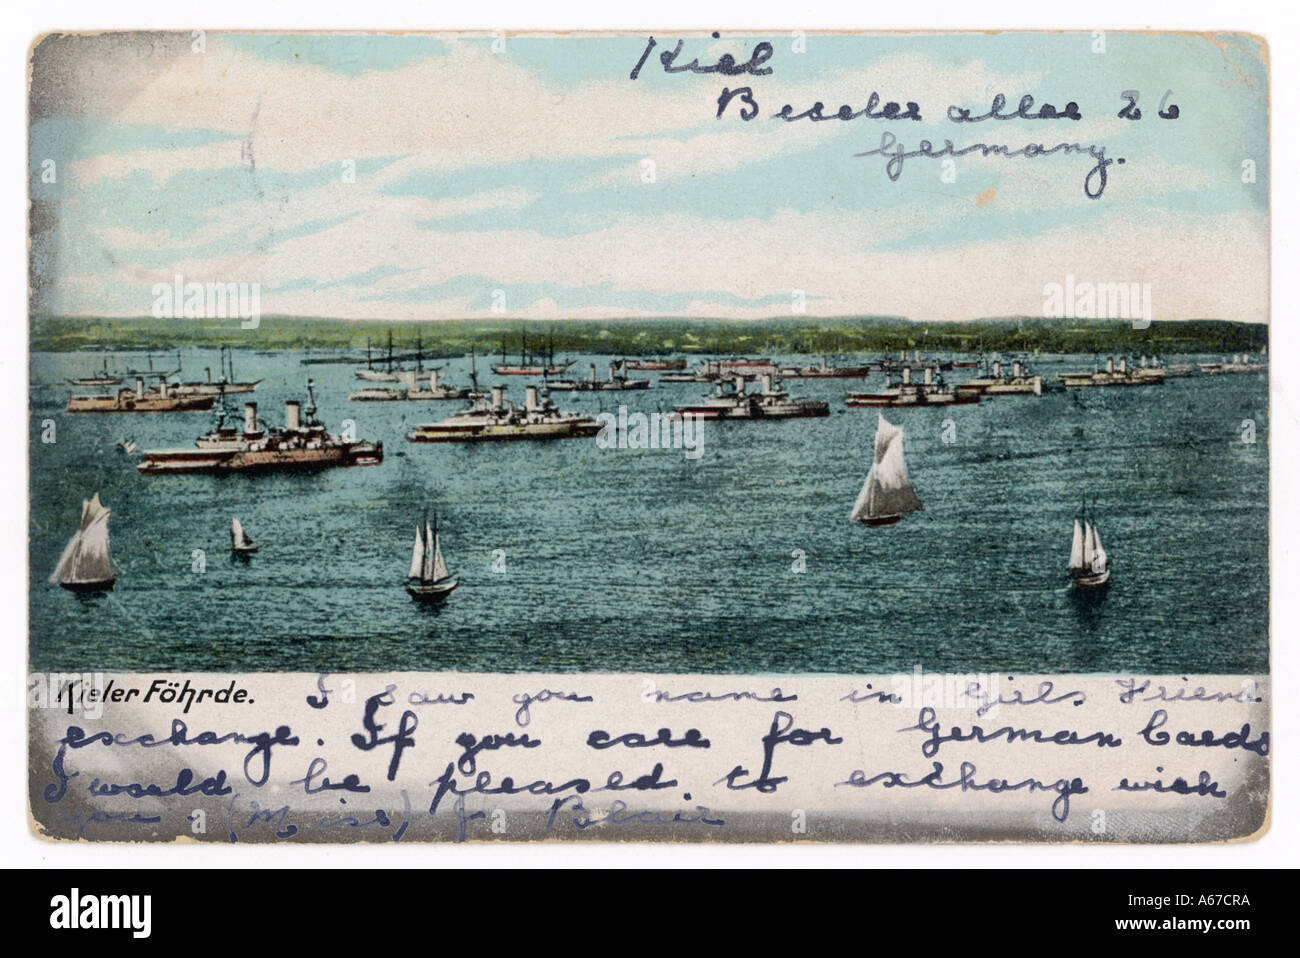 Kiel
Beseler allee 26
Germany.
Kieler Föhrde. I saw you name in Girls Friend
exchange. If you care for German Cards
I would be pleased to exchange with
you. (Miss) J. Blair
alamy
Image ID: A67CRA
www.alamy.com